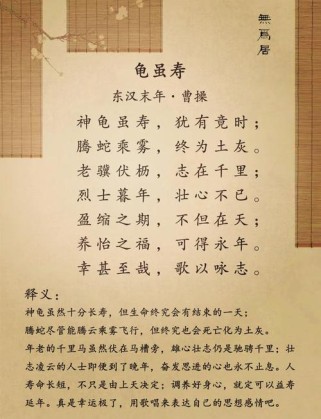 無為居
龟虽寿
东汉末年·曹操
神龟虽寿，犹有竟时；
腾蛇乘雾，终为土灰。
老骥伏枥，志在千里；
烈士暮年，壮心不已。
盈缩之期，不但在天；
养怡之福，可得永年。
幸甚至哉，歌以咏志。
释义：
神龟虽然十分长寿，但生命终究会有结束的一天；
腾蛇尽管能腾云乘雾飞行，但终究也会死亡化为土灰。
年老的千里马虽然伏在马槽旁，雄心壮志仍是驰骋千里；壮
志凌云的人士即便到了晚年，奋发思进的心也永不止息。人
寿命长短，不只是由上天决定；调养好身心，就定可以益寿
延年。真是幸运极了，用歌唱来表达自己的思想感情吧。